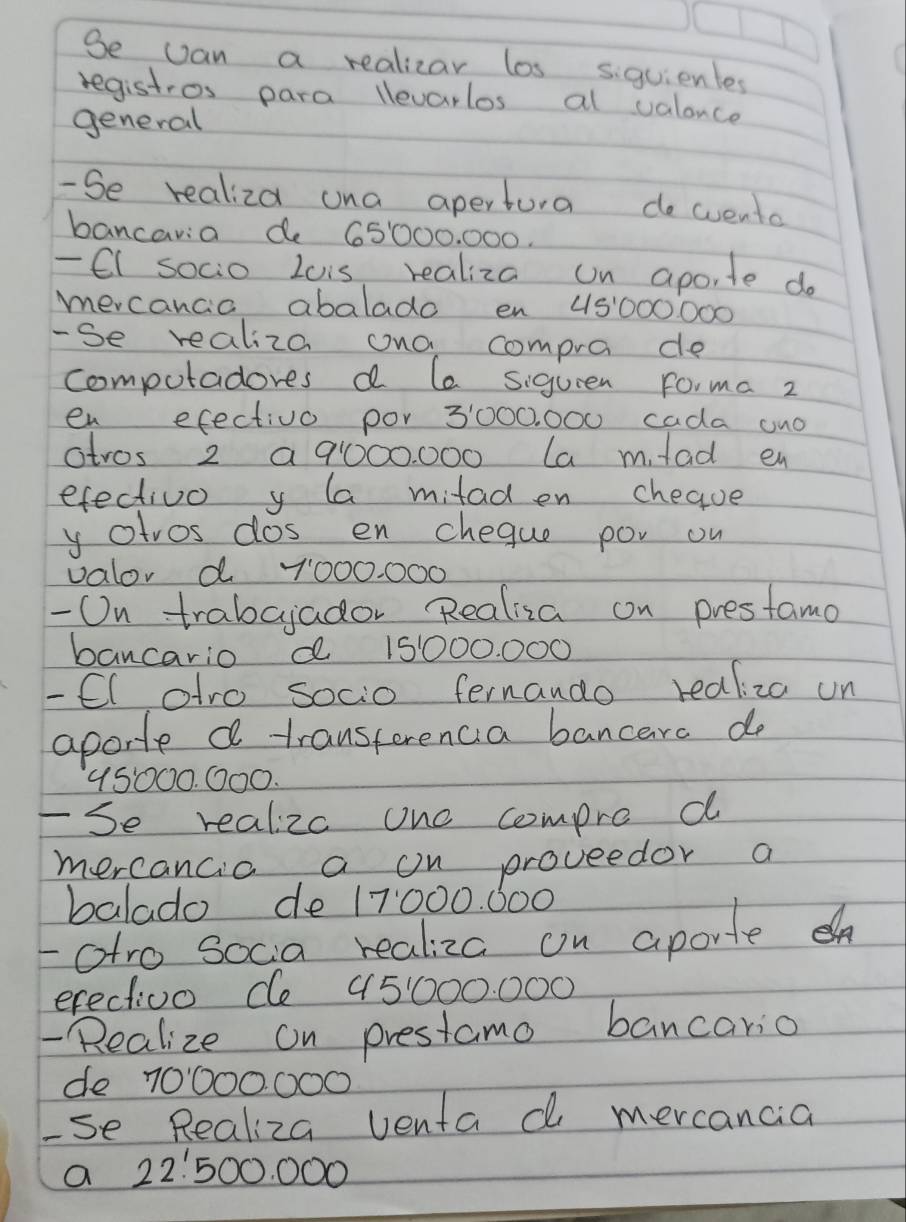 Se van a realizar los siguientes
registros para llevarlos al valance
general
- Se realiza una apertura de cuenta
bancaria de 65'000.000.
- El socio luis realiza un aporte de
mercancia abalado en 45'000.000
- Se realiza una compra de
computadores de la siguien forma 2
en efectivo por 3'000.000 cada uno
otros 2 a 9'000.000 la mitad en
efectivo y la mitad en cheque
y otros dos en cheque por un
valor de 7'000.000
- Un trabajador Realiza un prestamo
bancario de 15'000.000
- El otro socio fernando realiza un
aporte de transferencia bancara de
45'000.000.
- Se realiza una compra de
mercancia a un proveedor a
balado de 17'000.000
- Otro Socia realiza un aporte en
efectivo de 45'000.000
- Realize un prestamo bancario
de 70'000.000
- Se Realiza venta de mercancia
a 22'.500.000